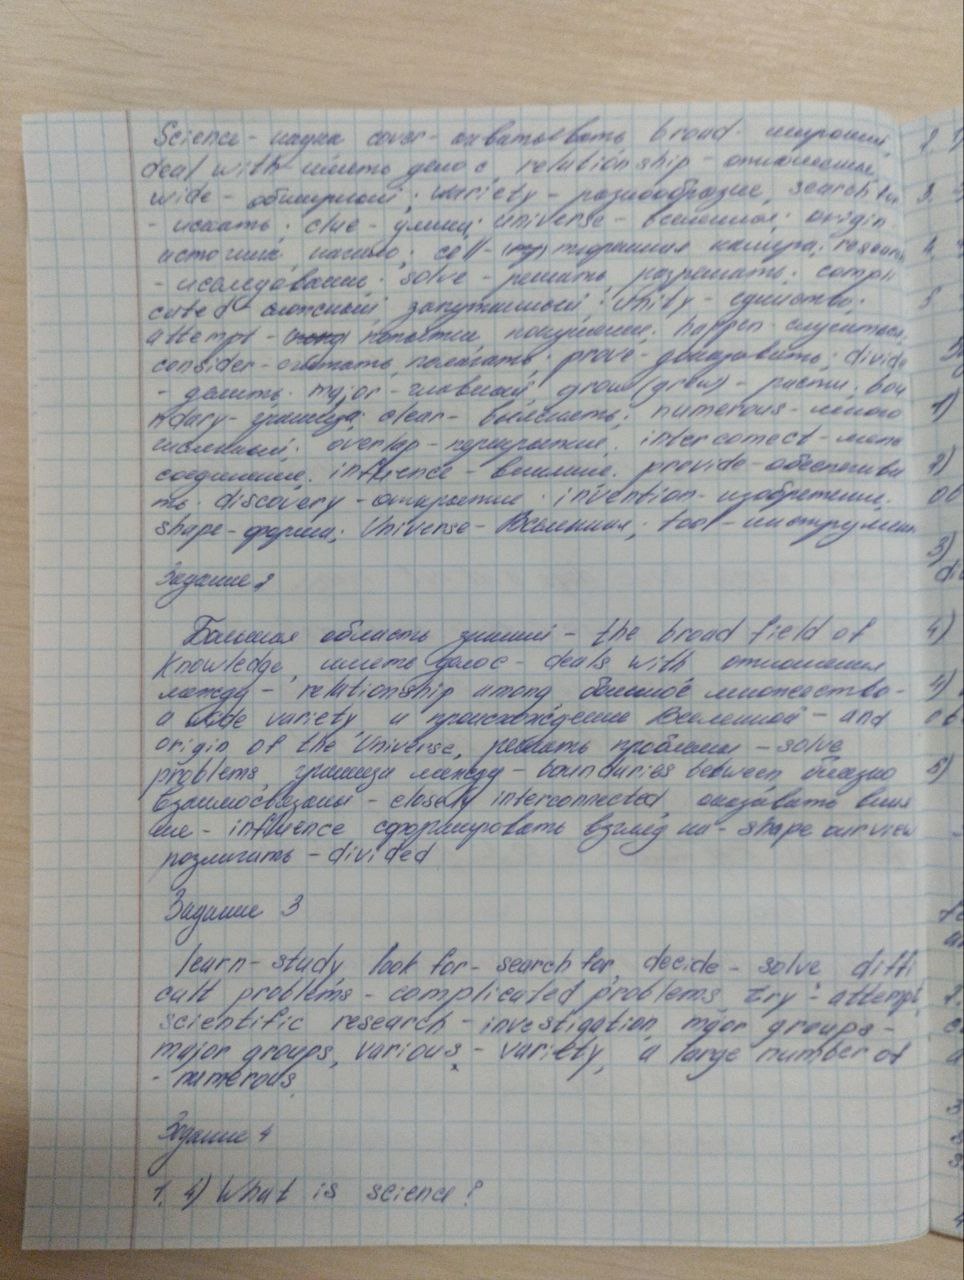 Science - наука cover - охватывать, broad - широкий,
deal with - иметь дело с, relationship - отношение,
wide - обширный; variety - разнообразие, search for
- искать; clue - улики; universe - вселенная; origin
источник, начало; cell - тюремная камера; resear
- исследование; solve - решать, разрешать; compli
cated - сложный, запутанный; Unity - единство;
attempt - попытка, покушение; happen - случиться,
consider - считать, полагать; prove - доказывать; divide
- делить. major - главный, grow (grew) - расти, bou
ndary - граница; clear - выяснить; numerous - много
численный; overlap - перекрытие, interconnect -
соединение. influence - влияние. provide - обеспечива
ть. discovery - открытие. invention - изобретение.
shape - форма; Universe - Вселенная; tool - инструмент
Задание 2
Большая область знаний - the broad field of
knowledge, иметь дело с - deals with отношения
между - relationship among, большое множество -
a wide variety и происхождение Вселенной - and
origin of the Universe, решать проблемы - solve
problems, границы между - boundaries between, близко
взаимосвязаны - closely interconnected, оказывать влия
ние - influence, сформировать взгляд на - shape our view
различать - divided
Задание 3
learn - study, look for - search for, decide - solve, diffi
cult problems - complicated problems, try - attempt,
scientific research - investigation, major groups -
major groups, various - variety, a large number of
- numerous
Задание 4
1. 4) What is science?